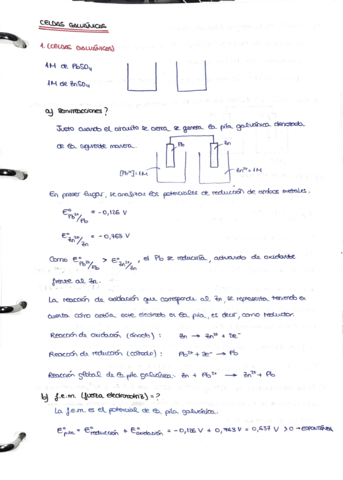 CELDAS GALVÁNICAS
1. (CELDAS GALVÁNICAS)
1M de PbSO4
1M de ZnSO4
a) Semirreacciones?
Justo cuando el circuito se cierra, se genera la pila galvánica denotada
de la siguiente manera.
Pb Zn
[Pb²⁺]=1M Zn²⁺=1M
En primer lugar, se analizan los potenciales de reducción de ambos metales.
E° Pb²⁺/Pb = -0,126 V
E° Zn²⁺/Zn = -0,763 V
Como E° Pb²⁺/Pb > E° Zn²⁺/Zn, el Pb se reduciría, actuando de oxidante
frente al Zn.
La reacción de oxidación que corresponde al Zn, se representa teniendo en
cuenta cómo actúa este electrodo en la pila, es decir, como reductor.
Reacción de oxidación (ánodo): Zn → Zn²⁺ + 2e⁻
Reacción de reducción (cátodo): Pb²⁺ + 2e⁻ → Pb
Reacción global de la pila galvánica: Zn + Pb²⁺ → Zn²⁺ + Pb
b) f.e.m. (fuerza electromotriz) = ?
La f.e.m es el potencial de la pila galvánica.
E°pila = E°reducción + E°oxidación = -0,126 V + 0,763 V = 0,637 V > 0 → ESPONTÁNEA